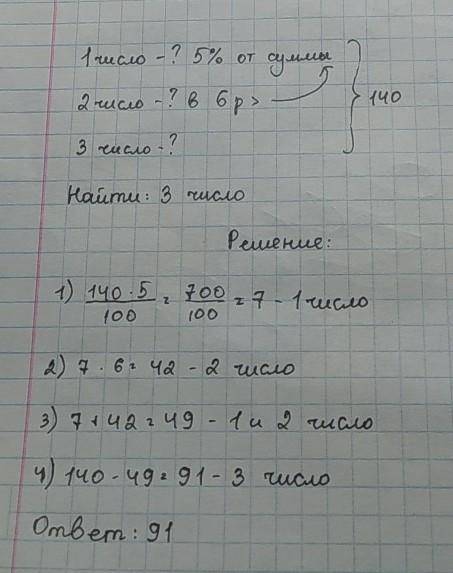 1 число - ? 5% от суммы
2 число - ? в 6 р >
140
3 число - ?
Найти: 3 число
Решение:
1) 140 · 5 / 100 = 700 / 100 = 7 - 1 число
2) 7 · 6 = 42 - 2 число
3) 7 + 42 = 49 - 1 и 2 число
4) 140 - 49 = 91 - 3 число
Ответ: 91